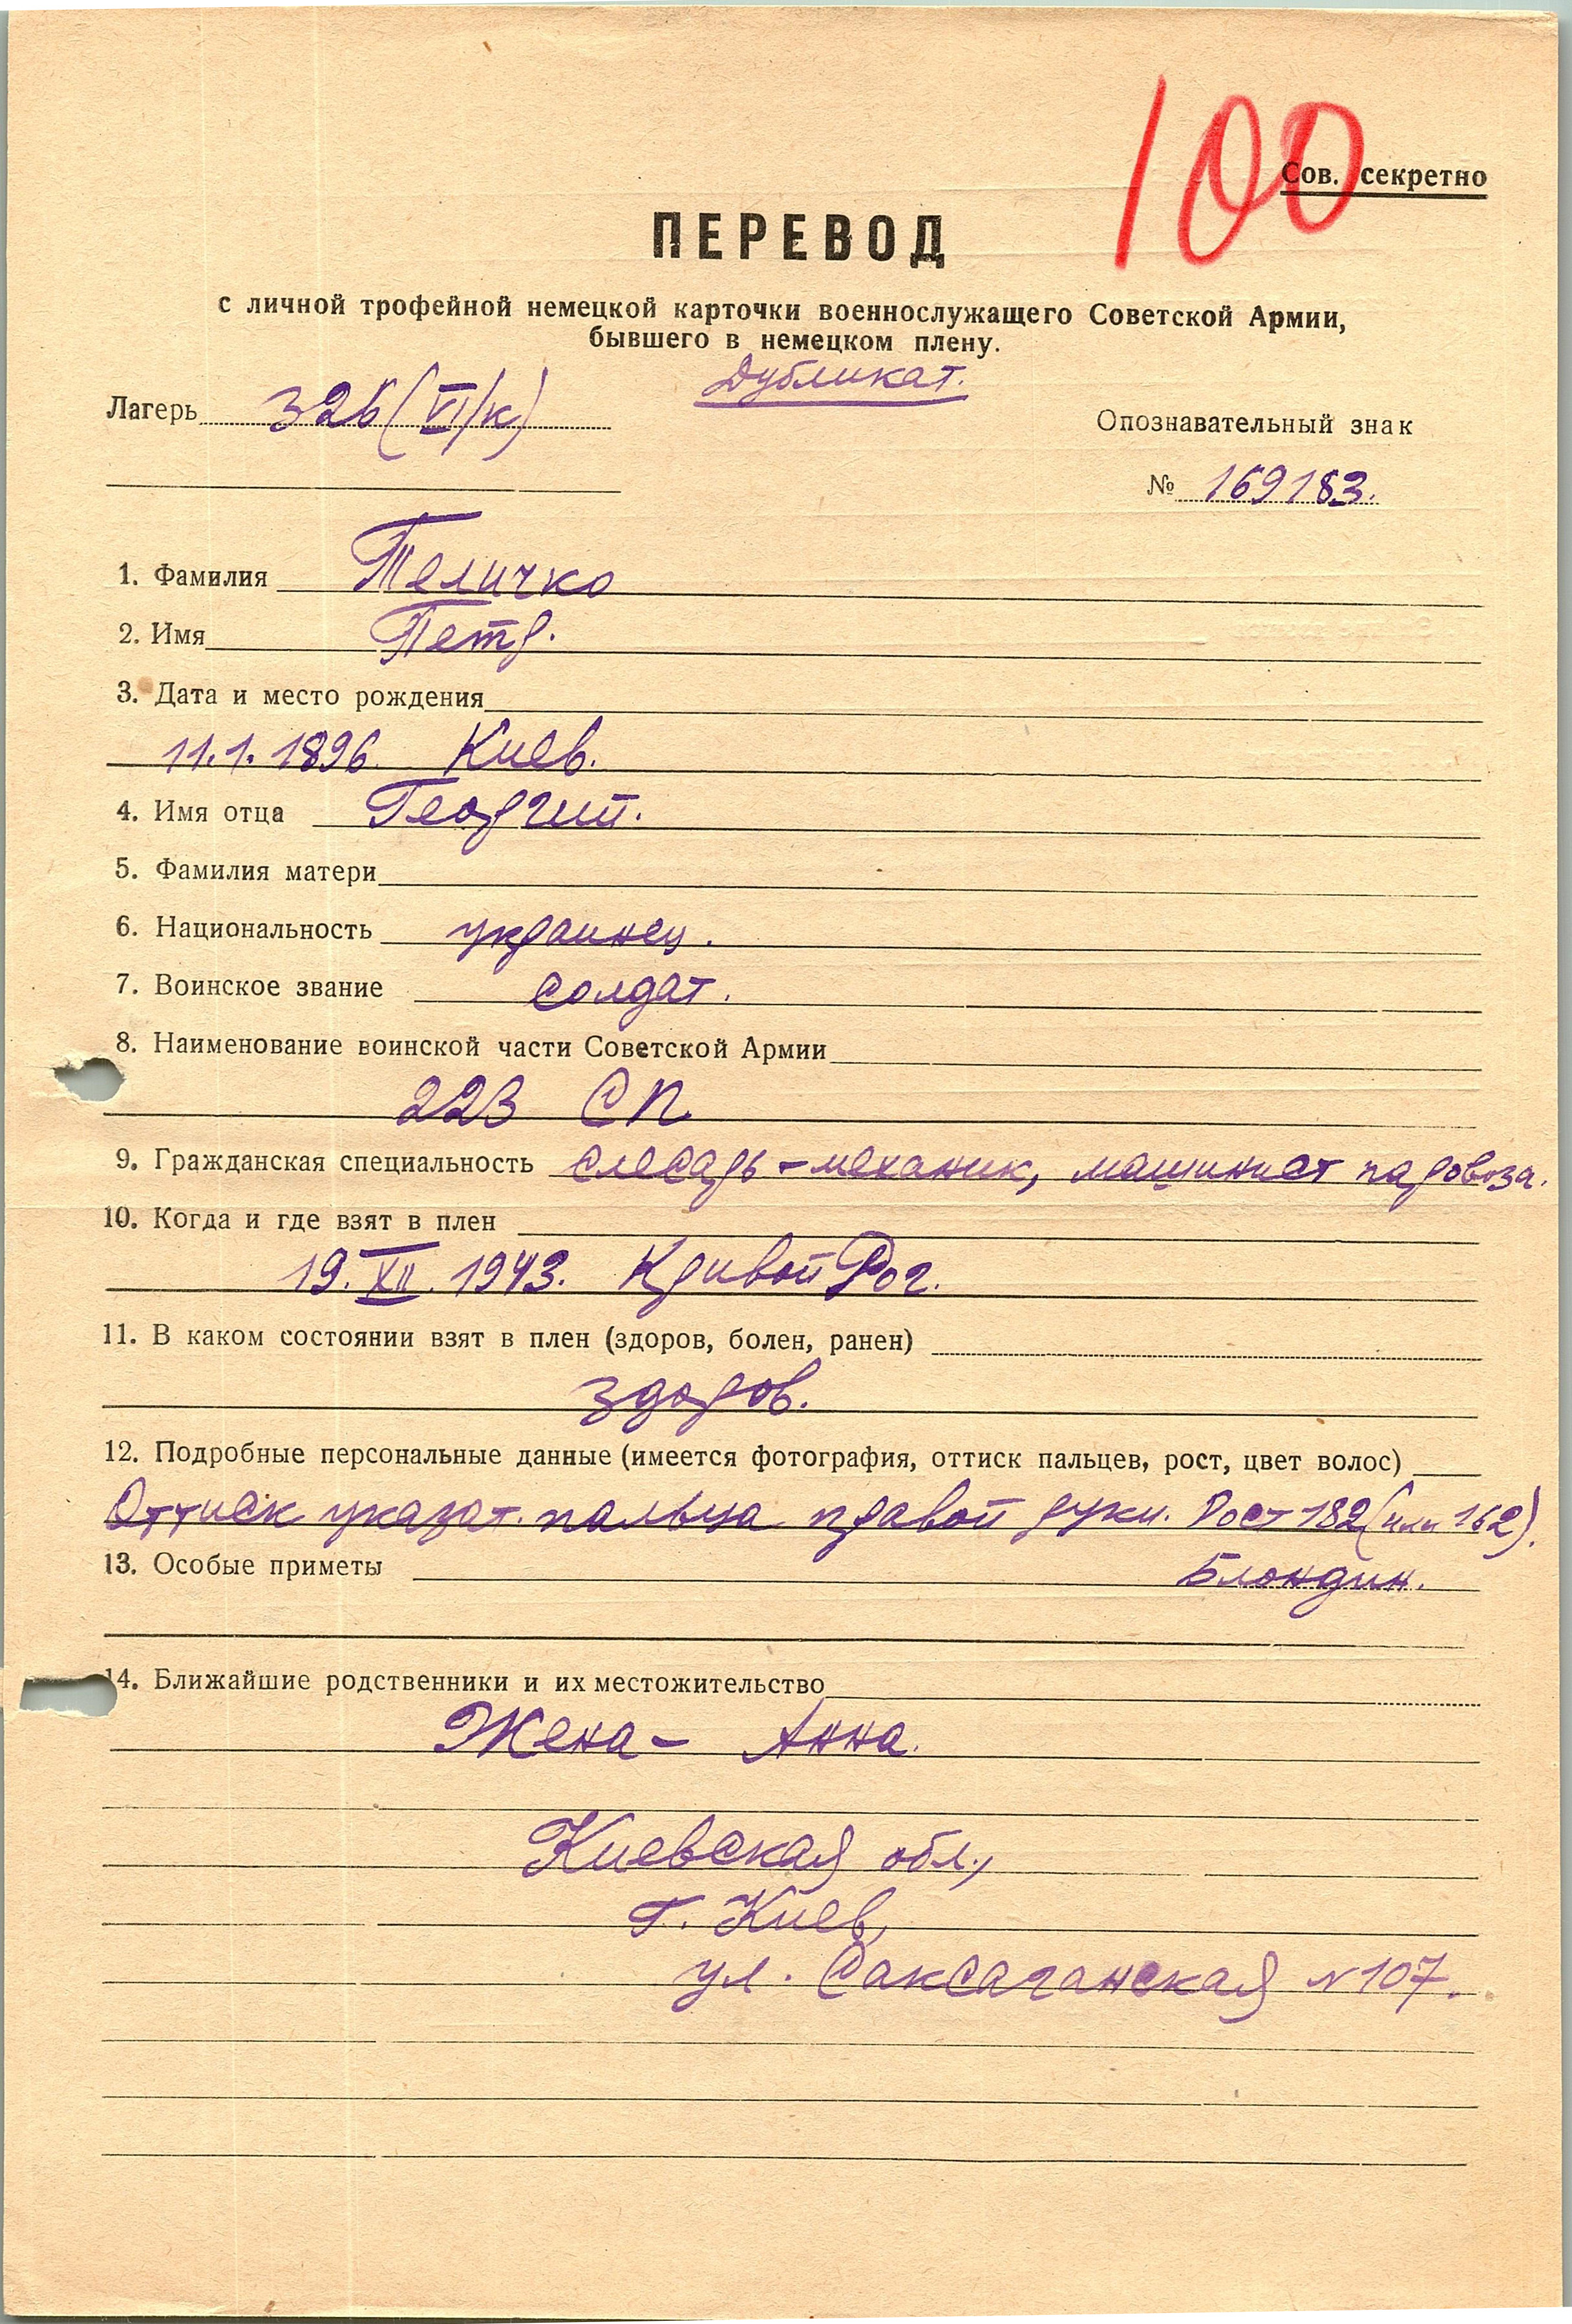 100
Сов. секретно
ПЕРЕВОД
с личной трофейной немецкой карточки военнослужащего Советской Армии,
бывшего в немецком плену.
Дубликат.
Лагерь 326 (VI/к)
Опознавательный знак
№ 169183.
1. Фамилия Теличко
2. Имя Петр.
3. Дата и место рождения
11.1.1896. Киев.
4. Имя отца Георгий.
5. Фамилия матери
6. Национальность украинец.
7. Воинское звание солдат.
8. Наименование воинской части Советской Армии
223 СП.
9. Гражданская специальность слесарь-механик, машинист паровоза.
10. Когда и где взят в плен
19.XII.1943. Кривой Рог.
11. В каком состоянии взят в плен (здоров, болен, ранен)
здоров.
12. Подробные персональные данные (имеется фотография, оттиск пальцев, рост, цвет волос)
Оттиск указат. пальца правой руки. Рост 182 (или 162).
Блондин.
13. Особые приметы
14. Ближайшие родственники и их местожительство
Жена - Анна.
Киевская обл.,
г. Киев,
ул. Саксаганская №107.